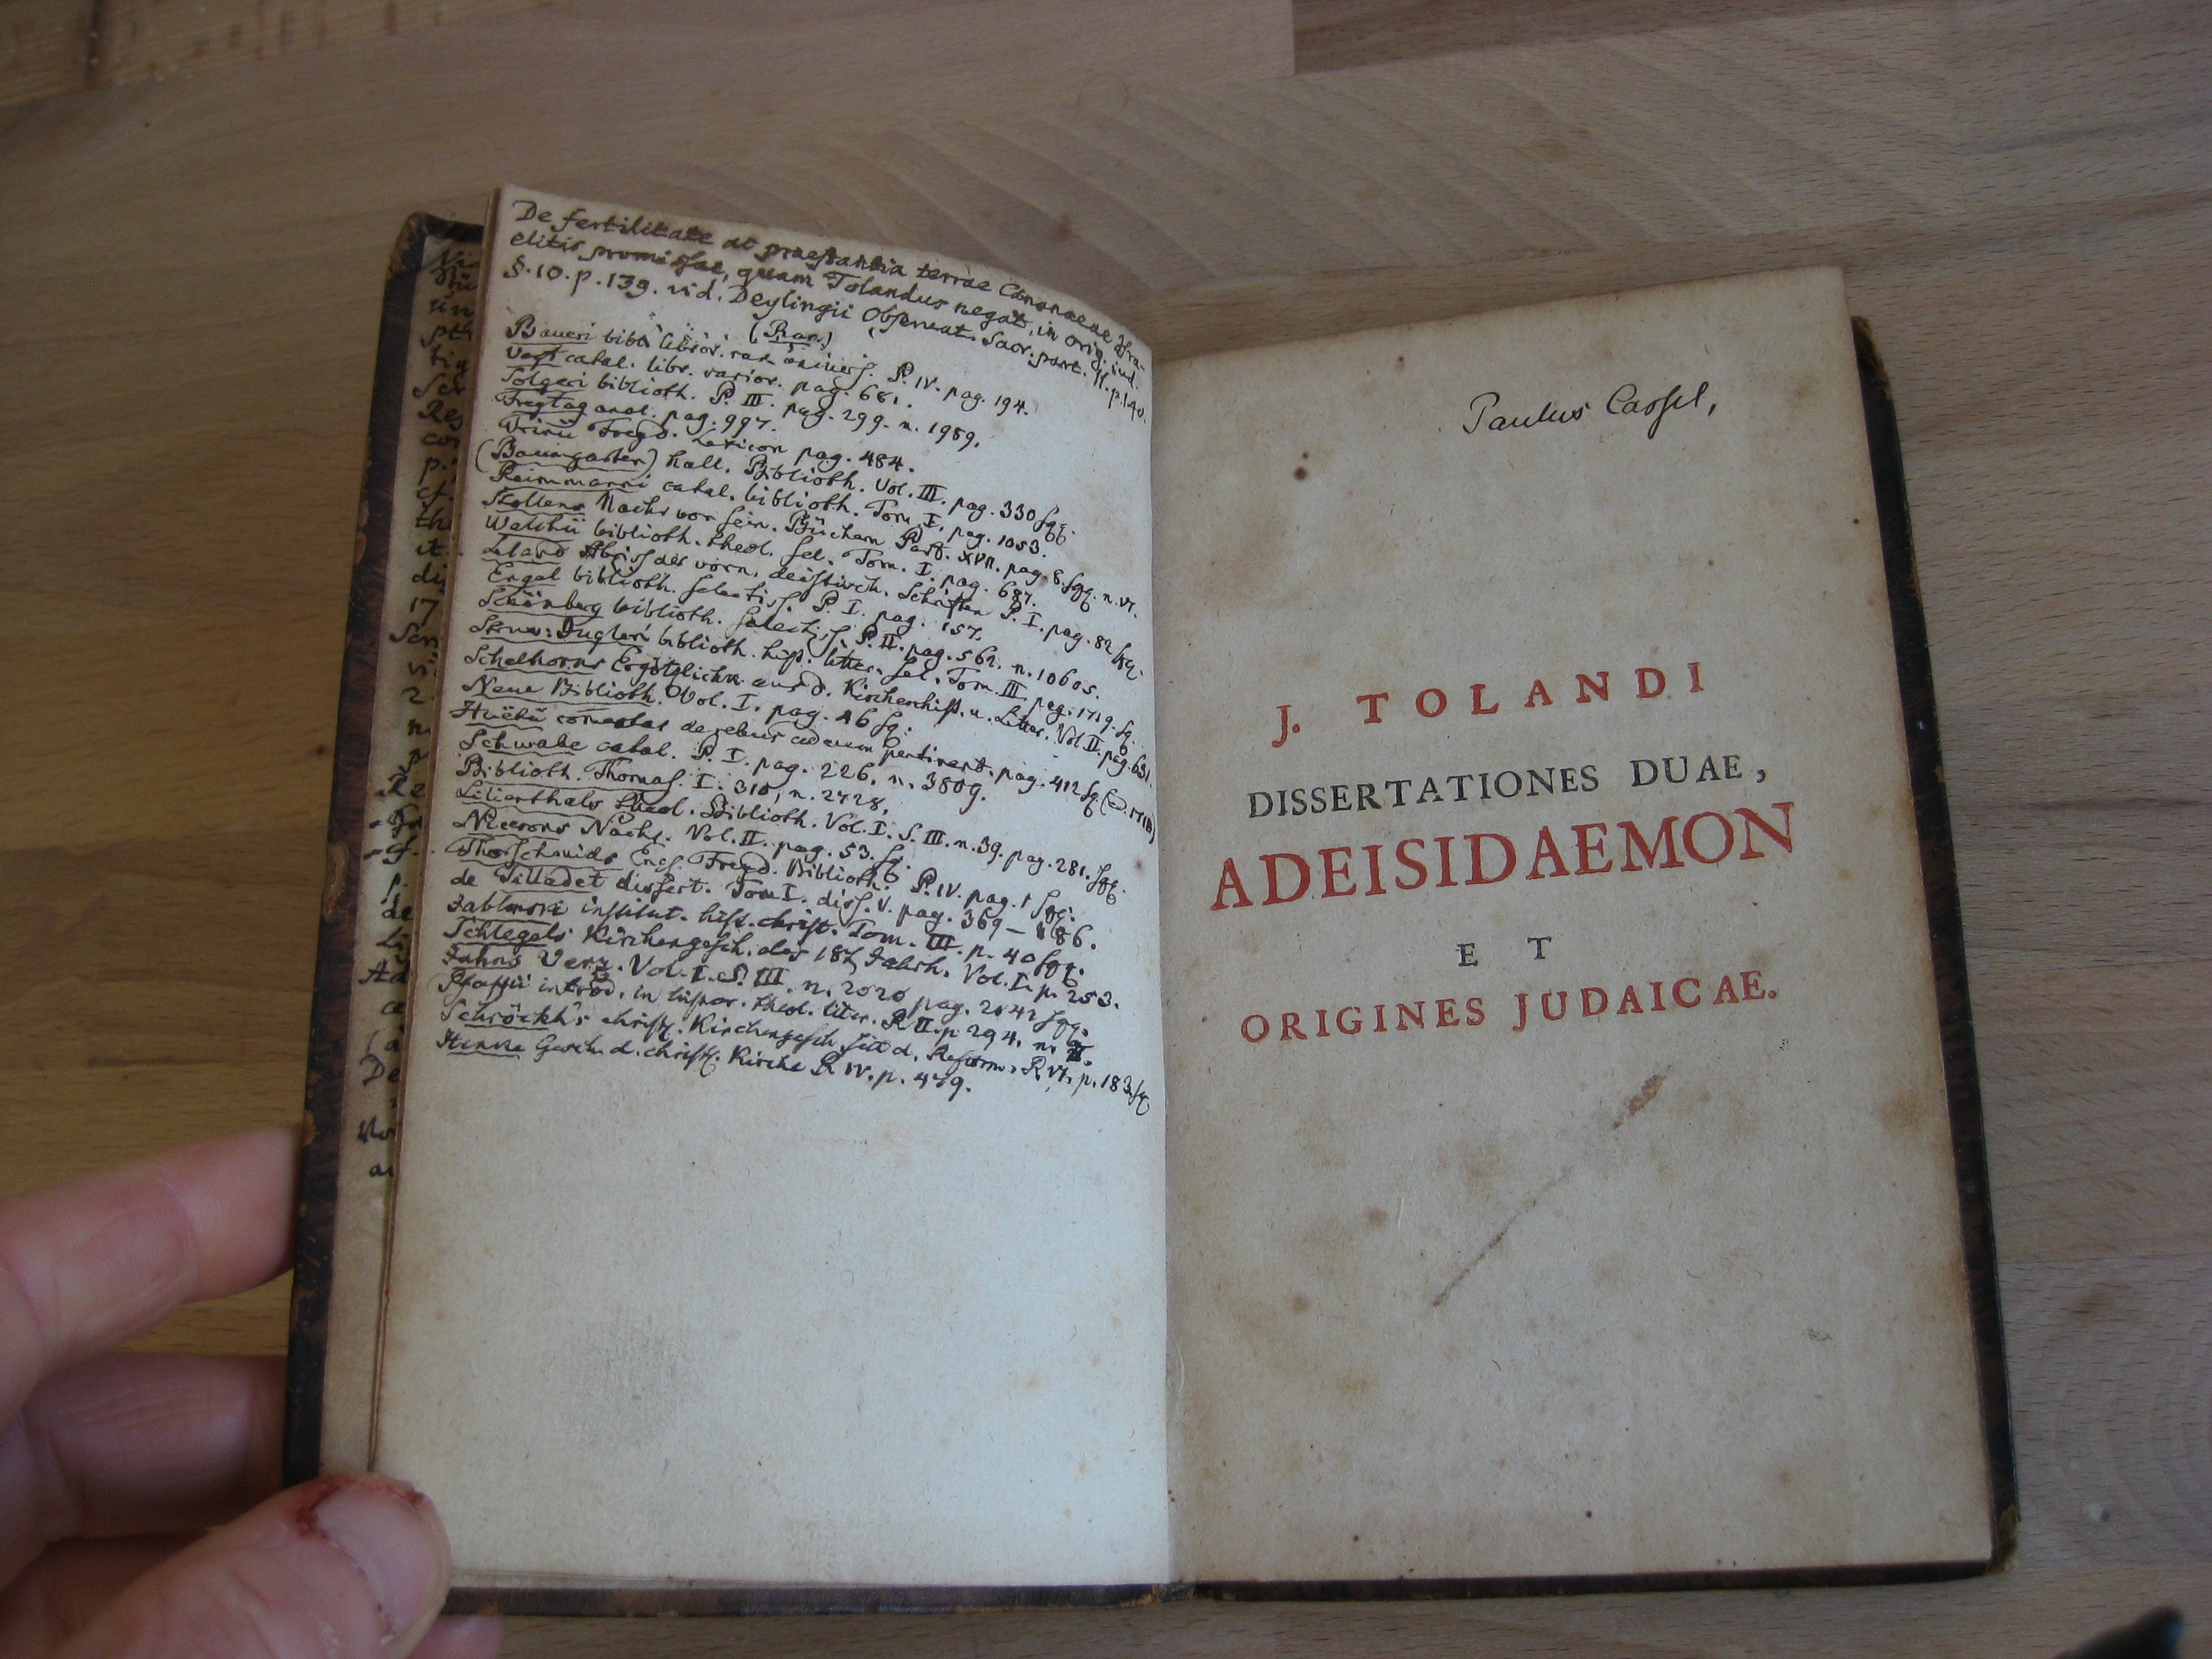 De fertilitate ac praestantia terrae Cananaeae Isra-
elitis promissae, quam Tolandus negat, in orig. iud.
§. 10. p. 139. vid. Deylingii Observat. Sacr. part. II. p. 140.
(Rar.)
Baueri bibl. libror. rar. univers. P. IV. pag. 194.
Vogt catal. libr. rarior. pag. 681.
Solgeri biblioth. P. III. pag. 299. n. 1989.
Freytag anal. pag. 997.
Trinii Freyd. Lexicon pag. 484.
(Baumgarten) hall. Biblioth. Vol. III. pag. 330 sqq.
Reimmanni catal. biblioth. Tom. I. pag. 1053.
Stollens Nachr von sein. Büchern Part. XVII. pag. 8. sqq. n. VI.
Walchii biblioth. theol. sel. Tom. I. pag. 687.
Leland Abriss der vorn. deistisch. Schriften P. I. pag. 82 sqq.
Engel biblioth. selectiss. P. I. pag. 157.
Schönberg biblioth. selectiss. P. II. pag. 562. n. 10605.
Struv: Jugleri biblioth. hist. litter. sel. Tom. III. pag. 1719. sq.
Schelhorns Ergötzlichk. aus d. Kirchenhist. u. Litter. Vol. II. pag. 631.
Neue Biblioth. Vol. I. pag. 46 sq.
Huëtii de rebus ad eum pertinent. pag. 412 sq. (ed. 1718)
Schwabe catal. P. I. pag. 226. n. 3809.
Biblioth. Thomas. I. 310, n. 2428.
Lilienthals theol. Biblioth. Vol. I. S. III. n. 39. pag. 281. sqq.
Nicerons Nachr. Vol. II. pag. 53. sq.
Thorschmids Engl. Freyd. Biblioth. P. IV. pag. 1 sqq.
de Tilladet dissert. Tom I. diss. V. pag. 369 — 86.
Jablonski institut. hist. christ. Tom. III. p. 40 sqq.
Schlegels Kirchengesch. des 18t Jahrh. Vol. I. p. 253.
Jahns Verz. Vol. I. S. III. n. 2020 pag. 2041 sqq.
Pfaffii introd. in histor. theol. liter. P. II. p. 294. n.
Schröckh's christl. Kirchengesch. seit d. Reform. P. VI. p. 183. sq
Henke Gesch. d. christl. Kirche P. IV. p. 479.
Paulus Cassel,
J. TOLANDI
DISSERTATIONES DUAE,
ADEISIDAEMON
ET
ORIGINES JUDAICAE.